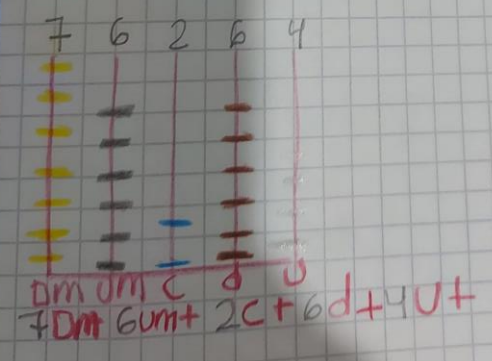 7 6 2 6 4
Dm Um C d U
7Dm+ 6Um+ 2C+6d+4U+